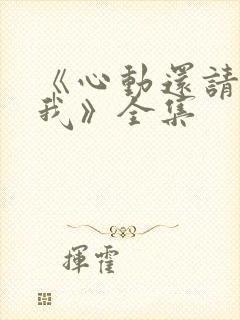 《心動還請
我》全集
揮霍